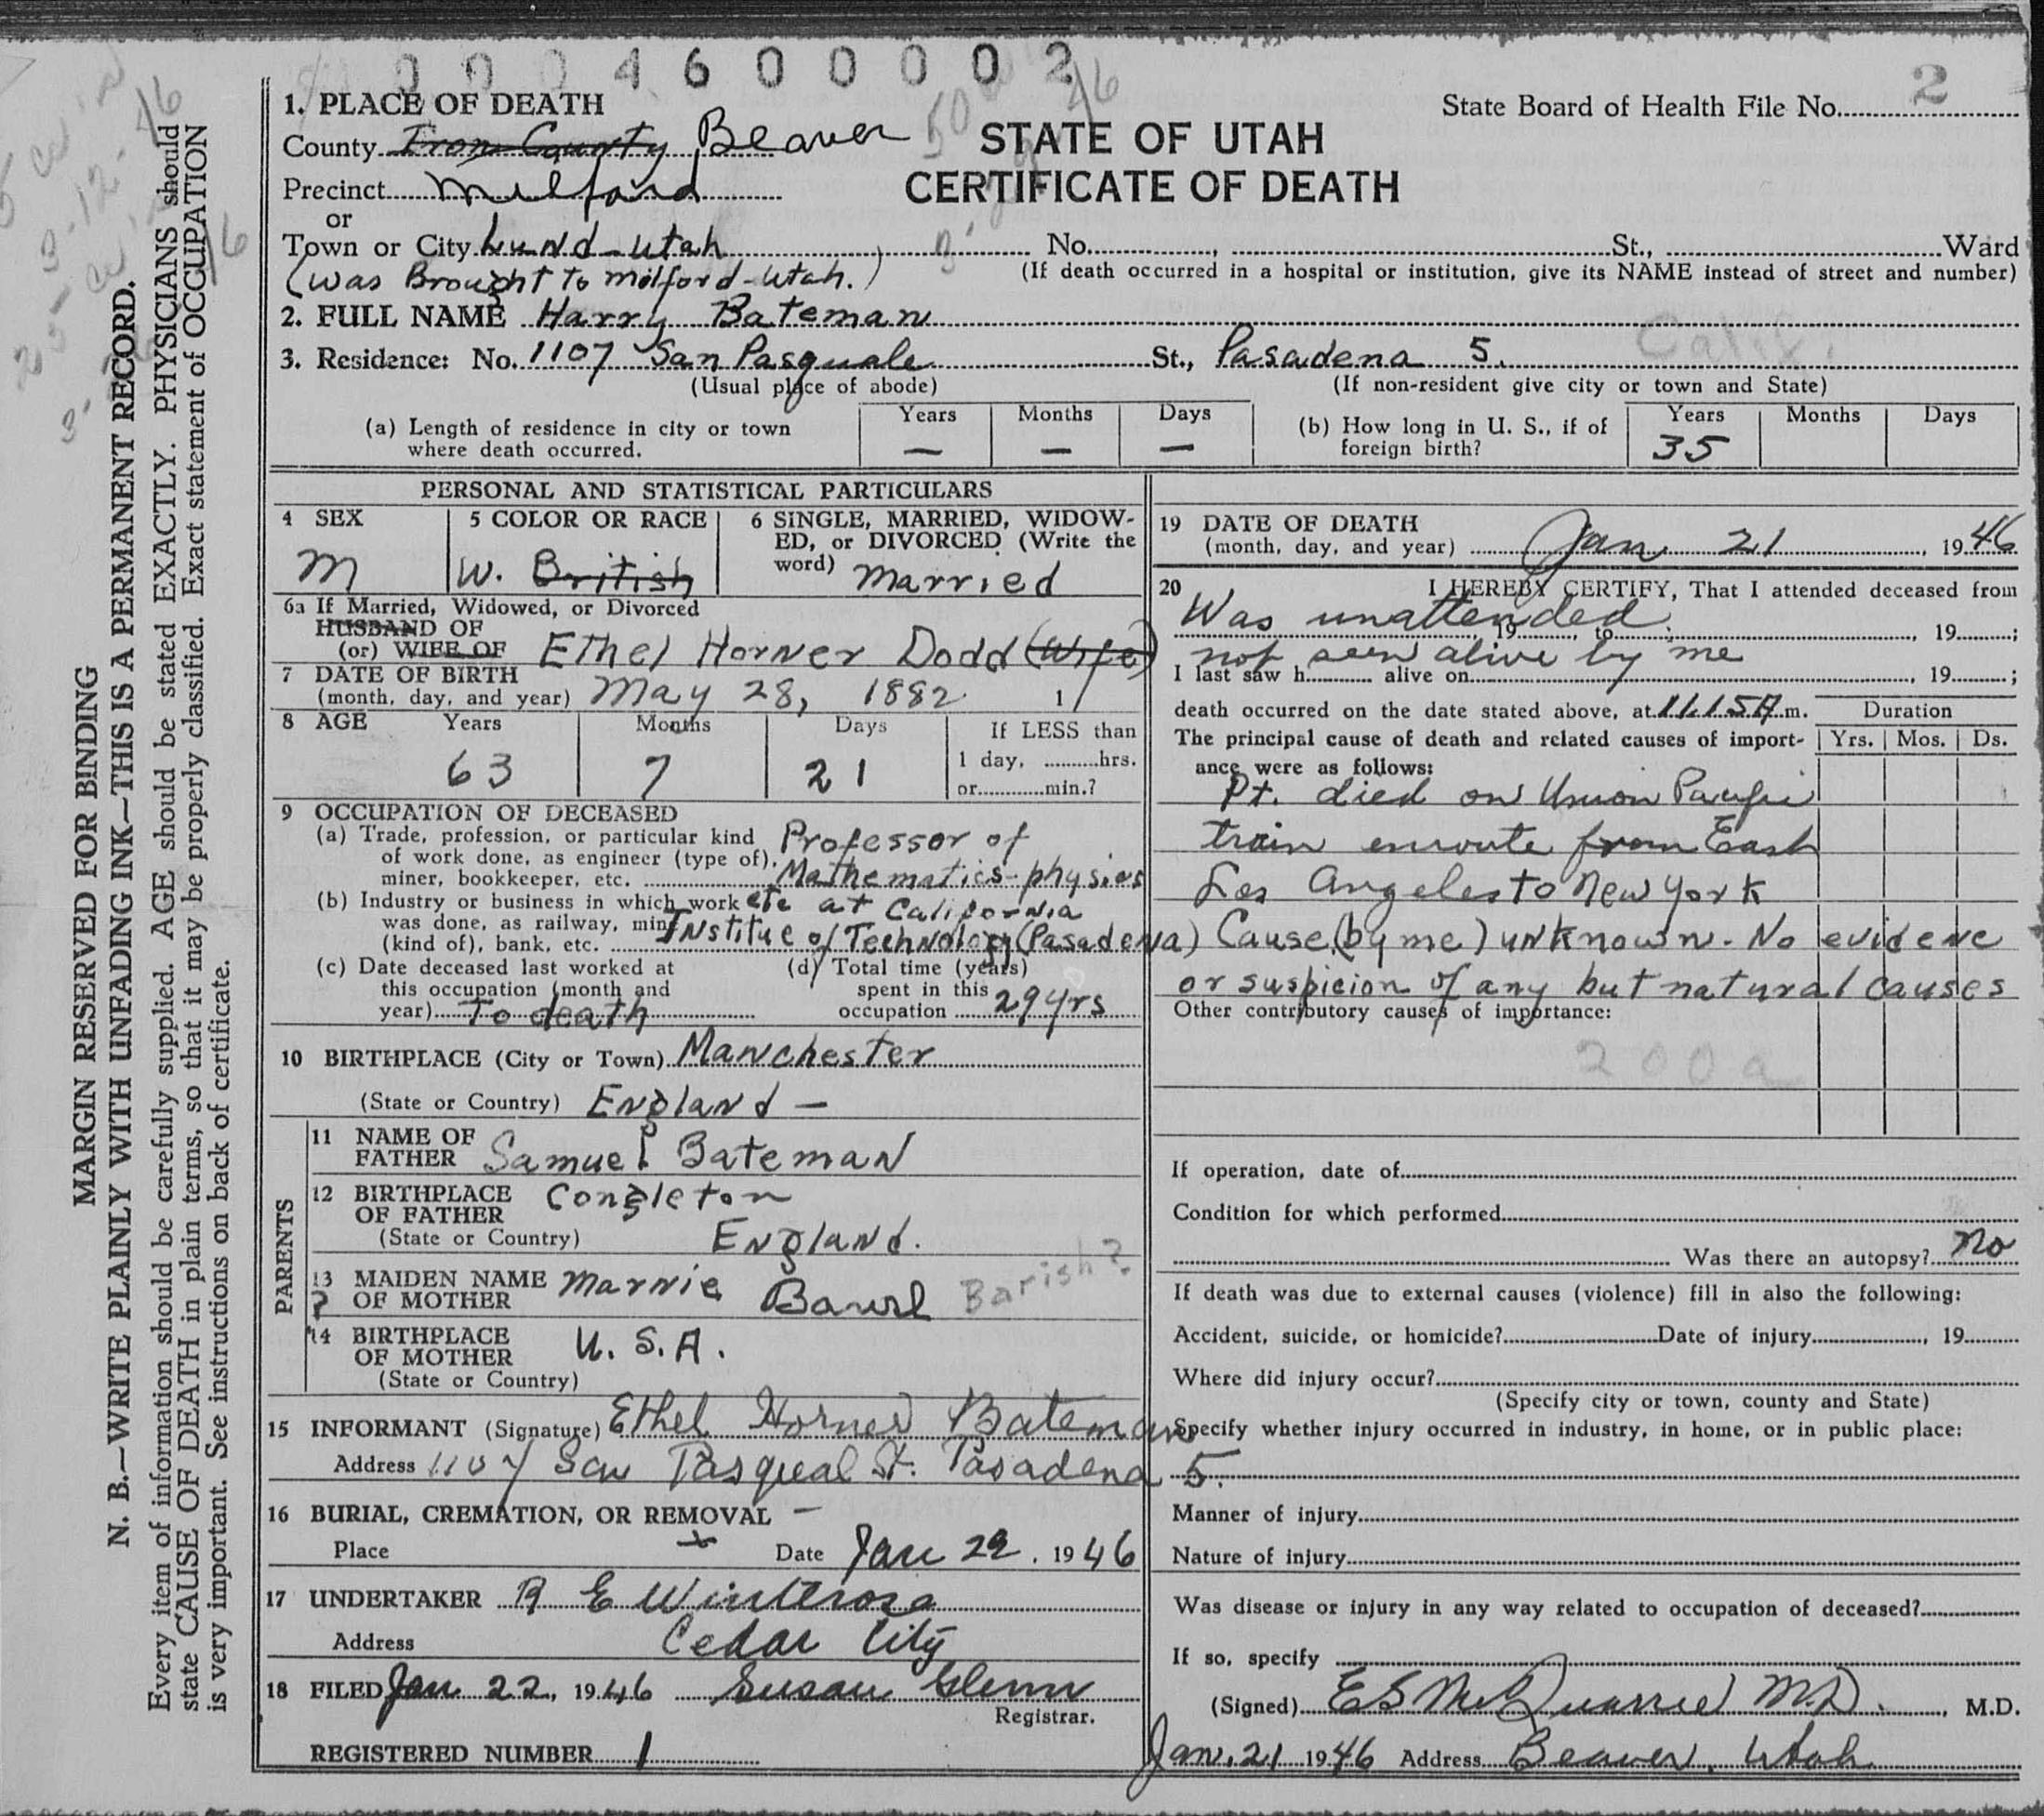 0 0 0 4 6 0 0 0 0 2
2
1. PLACE OF DEATH
State Board of Health File No.
County Iron County Beaver
STATE OF UTAH
Precinct Milford
CERTIFICATE OF DEATH
or
Town or City Lund-Utah No. , St., Ward
(was Brought to Milford-Utah.)
(If death occurred in a hospital or institution, give its NAME instead of street and number)
2. FULL NAME Harry Bateman
3. Residence: No. 1107 San Pasquale St., Pasadena 5. Calif.
(Usual place of abode) (If non-resident give city or town and State)
(a) Length of residence in city or town where death occurred. Years — Months — Days —
(b) How long in U. S., if of foreign birth? Years 35 Months Days
PERSONAL AND STATISTICAL PARTICULARS
4 SEX
M
5 COLOR OR RACE
W. British
6 SINGLE, MARRIED, WIDOW-
ED, or DIVORCED (Write the
word) Married
6a If Married, Widowed, or Divorced
HUSBAND OF
(or) WIFE OF Ethel Horner Dodd (Wife)
7 DATE OF BIRTH
(month, day, and year) May 28, 1882 1
8 AGE Years Months Days If LESS than
63 7 21 1 day, hrs.
or min.?
9 OCCUPATION OF DECEASED
(a) Trade, profession, or particular kind Professor of
of work done, as engineer (type of),
miner, bookkeeper, etc. Mathematics-physics
(b) Industry or business in which work etc at California
was done, as railway, min Institue of Technology (Pasadena)
(kind of), bank, etc.
(c) Date deceased last worked at
this occupation (month and
year) To death
(d) Total time (years)
spent in this
occupation 29 yrs
10 BIRTHPLACE (City or Town) Manchester
(State or Country) England —
PARENTS
11 NAME OF
FATHER Samuel Bateman
12 BIRTHPLACE Congleton
OF FATHER
(State or Country) England.
13 MAIDEN NAME Marnie
? OF MOTHER Barish?
14 BIRTHPLACE U. S. A.
OF MOTHER
(State or Country)
15 INFORMANT (Signature) Ethel Horner Bateman
Address 1107 San Pasqual St. Pasadena 5.
16 BURIAL, CREMATION, OR REMOVAL —
Place x Date Jan 22, 1946
17 UNDERTAKER R E Winterose
Address Cedar City
18 FILED Jan 22, 1946 Susan Glenn
Registrar.
REGISTERED NUMBER 1
19 DATE OF DEATH
(month, day, and year) Jan 21, 1946
20 I HEREBY CERTIFY, That I attended deceased from
Was unattended , 19 , to , 19 ;
not seen alive by me
I last saw h alive on , 19 ;
death occurred on the date stated above, at 11.15A m. Duration
The principal cause of death and related causes of import- Yrs. Mos. Ds.
ance were as follows:
Pt. died on Union Pacific
train enroute from East
Los Angeles to New York
Cause (by me) unknown. No evidence
or suspicion of any but natural causes
Other contributory causes of importance:
200a
If operation, date of
Condition for which performed
Was there an autopsy? No
If death was due to external causes (violence) fill in also the following:
Accident, suicide, or homicide? Date of injury , 19
Where did injury occur?
(Specify city or town, county and State)
Specify whether injury occurred in industry, in home, or in public place:
Manner of injury
Nature of injury
Was disease or injury in any way related to occupation of deceased?
If so, specify
(Signed) E S McQuarrie M.D. , M.D.
Jan. 21 1946 Address Beaver, Utah
MARGIN RESERVED FOR BINDING
N. B.—WRITE PLAINLY WITH UNFADING INK—THIS IS A PERMANENT RECORD.
Every item of information should be carefully supplied. AGE should be stated EXACTLY. PHYSICIANS should
state CAUSE OF DEATH in plain terms, so that it may be properly classified. Exact statement of OCCUPATION
is very important. See instructions on back of certificate.